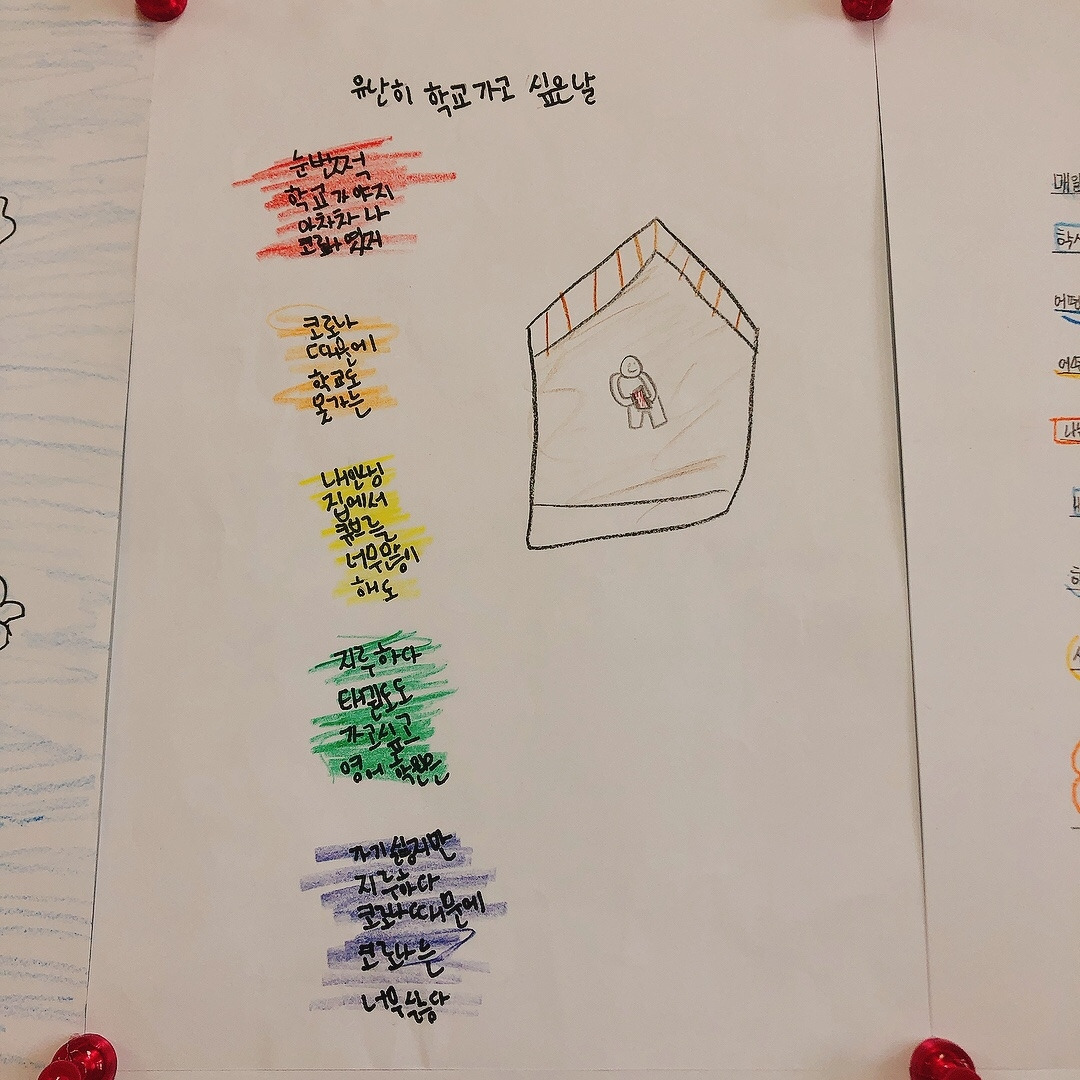 유난히 학교 가고 싶은날
눈번쩍
학교 가야지
아차차 나
코로나 였지
코로나
때문에
학교도
못가는
내인생
집에서
큐브를
너무많이
해도
지루하다
태권도도
가고싶고
영어 학원은
가기싫지만
지루하다
코로나때문에
코로나는
너무싫다
매일
어떤